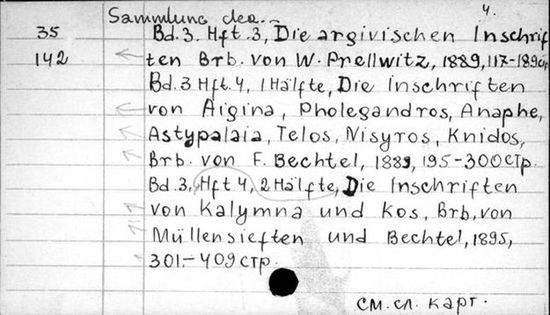 Sammlung der... 4.
35 Bd.3. Hft.3, Die argivischen Inschrif
142 ten Brb. von W. Prellwitz, 1889, 117-189 стр
Bd.3 Hft.4, 1 Hälfte, Die Inschriften
von Aigina, Pholegandros, Anaphe,
Astypalaia, Telos, Nisyros, Knidos,
Brb. von F. Bechtel, 1889, 195-300 стр.
Bd.3, Hft 4, 2 Hälfte, Die Inschriften
von Kalymna und Kos, Brb, von
Müllensieften und Bechtel, 1895,
301-409 стр.
см. сл. карт.